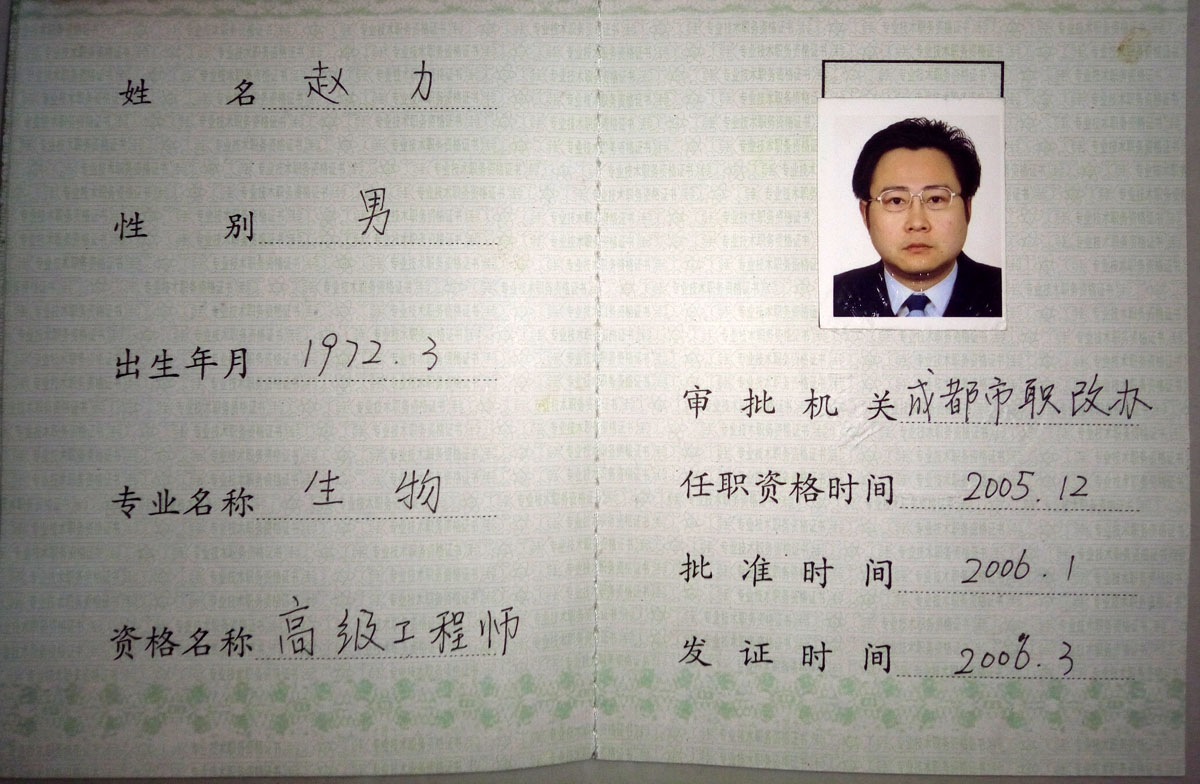 姓名 赵力
性别 男
出生年月 1972.3
专业名称 生物
资格名称 高级工程师
审批机关 成都市职改办
任职资格时间 2005.12
批准时间 2006.1
发证时间 2006.3